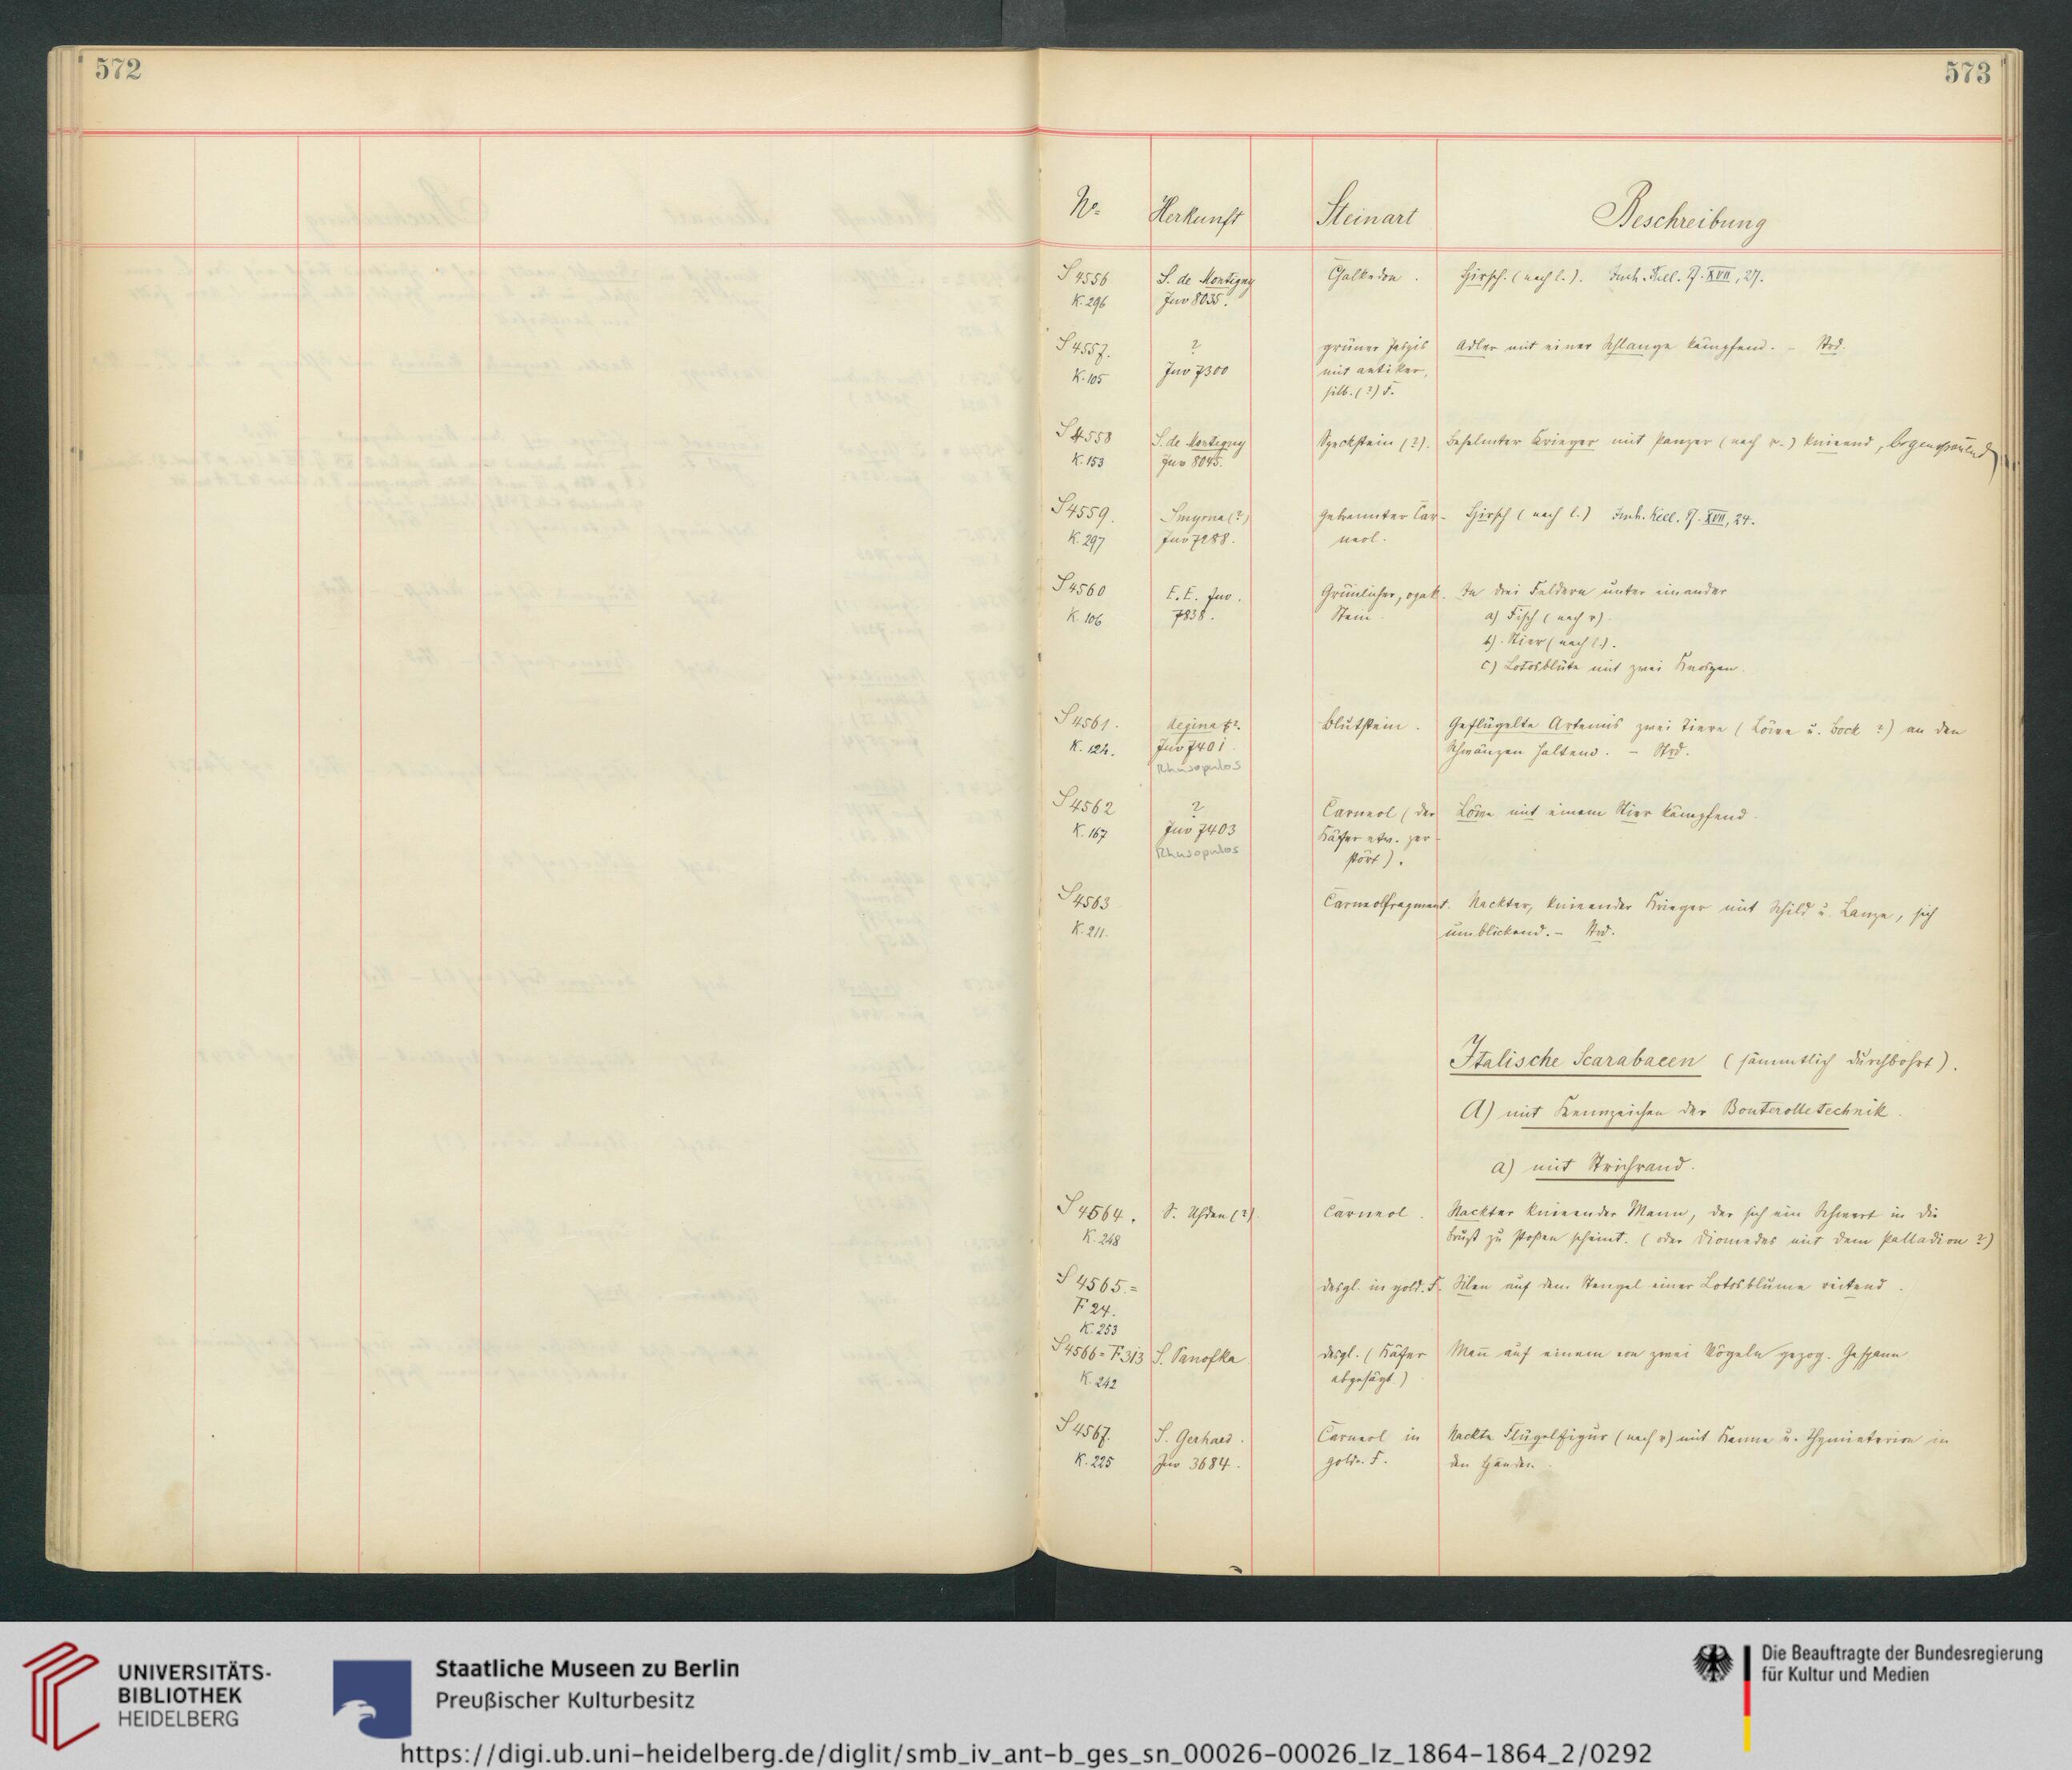 572
573
No Herkunft Steinart Beschreibung
S 4556 S. de Montigny Chalkedon. Hirsch. (nach l.). Imh. Kell. T. XVII, 27.
K. 296 Inv 8035.
S 4557. ? grüner Jaspis Adler mit einer Schlange kämpfend. – Strd.
K. 105 Inv 7300 mit antiker,
silb. (?) F.
S 4558 S. de Montigny Speckstein (?). Behelmter Krieger mit Panzer (nach r.) knieend, bogenspannend
K. 153 Inv 8045.
S 4559. Smyrna (?) Gebrannter Car- Hirsch (nach l.) Imh. Kell. T. XVII, 24.
K. 297 Inv 7288. neol.
S 4560 E. E. Inv. Grünlicher, opak. In drei Feldern unter einander
K. 106 7838. Stein a) Fisch (nach r).
b). Stier (nach l.).
c) Lotosblüte mit zwei Knospen.
S 4561. Aegina Blutstein. Geflügelte Artemis zwei Tiere (Löwe u. Bock ?) an den
K. 124. Inv 7401 Schwänzen haltend. – Strd.
Rhusopulos
S 4562 ? Carneol (der Löwe mit einem Stier kämpfend.
K. 167 Inv 7403 Käfer etw. zer-
Rhusopulos stört).
S 4563 Carneolfragment. Nackter, knieender Krieger mit Schild u. Lanze, sich
K. 211. umblickend. – Strd.
Italische Scarabaeen (sämmtlich durchbohrt).
A) mit Kennzeichen der Bouterolletechnik.
a) mit Strichrand.
S 4564. S. Uhden (?) Carneol. Nackter knieender Mann, der sich ein Schwert in die
K. 248 Brust zu stoßen scheint. (oder Diomedes mit dem Palladion ?)
S 4565. = desgl. in gold. F. Silen auf dem Stengel einer Lotosblume reitend.
F 24.
K. 253
S 4566 = F 313 S. Panofka desgl. (Käfer Mann auf einem von zwei Vögeln gezog. Gespann
K. 242 abgesägt.)
S 4567. S. Gerhard. Carneol in Nackte Flügelfigur (nach r) mit Kanne u. Thymiaterion in
K. 225 Inv 3684. gold. F. den Händen.
UNIVERSITÄTS-
BIBLIOTHEK
HEIDELBERG
Staatliche Museen zu Berlin
Preußischer Kulturbesitz
Die Beauftragte der Bundesregierung
für Kultur und Medien
https://digi.ub.uni-heidelberg.de/diglit/smb_iv_ant-b_ges_sn_00026-00026_lz_1864-1864_2/0292